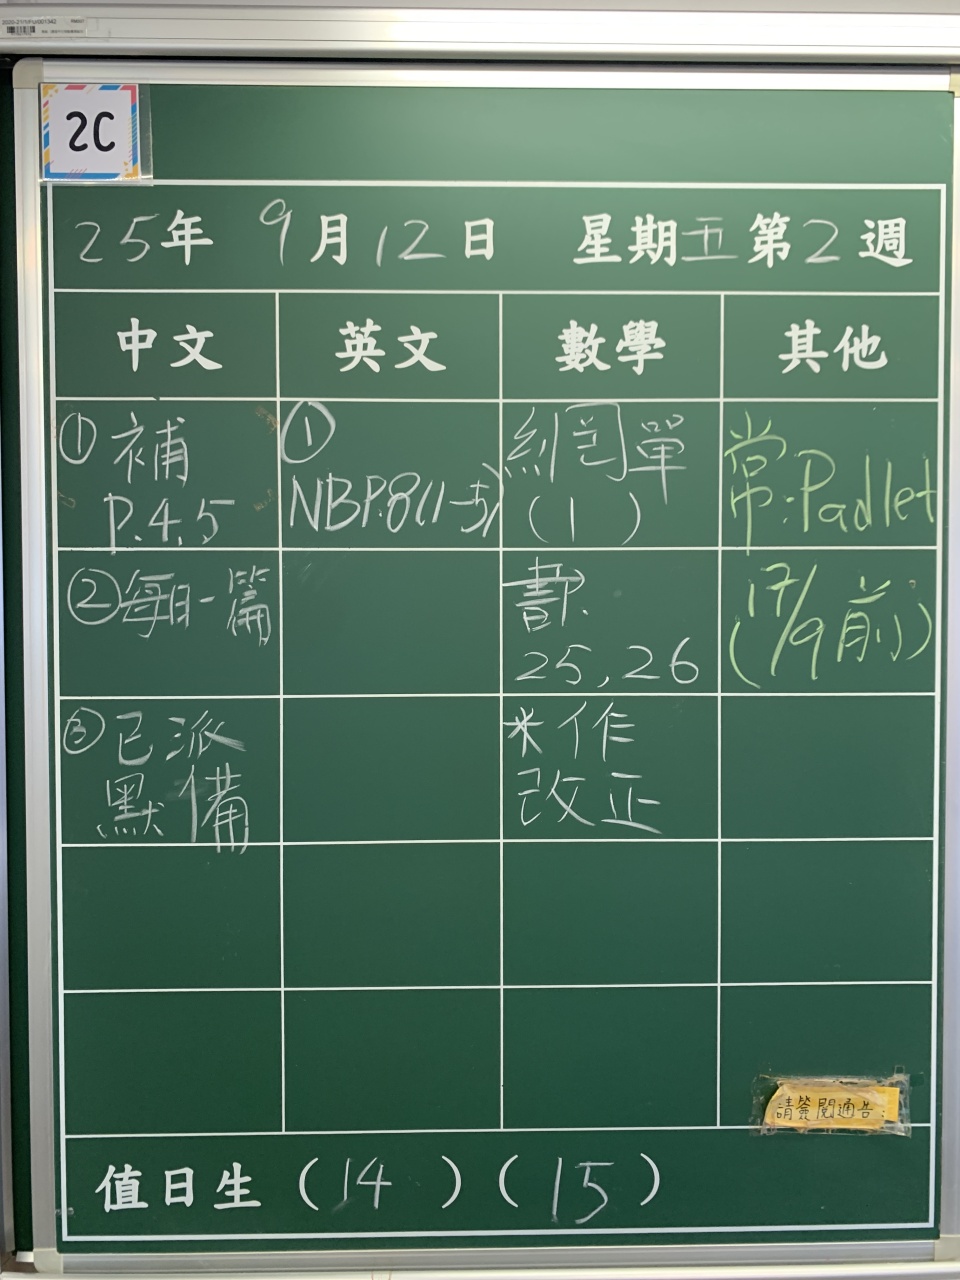 2C
25年 9月12日 星期五第2週
中文 英文 數學 其他
① 補
P.4,5
①
NBP.8(1-5)
網單
(1)
常:Padlet
②每日一篇
書P.
25,26
(17/9前)
③已派
默備
*作
改正
請簽閱通告:
值日生 (14) (15)